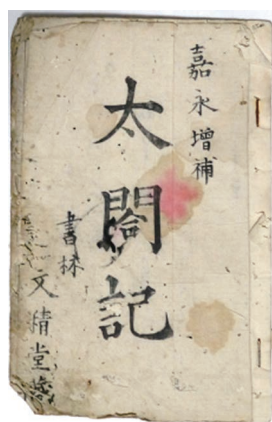 嘉永増補
太閤記
書林
文精堂